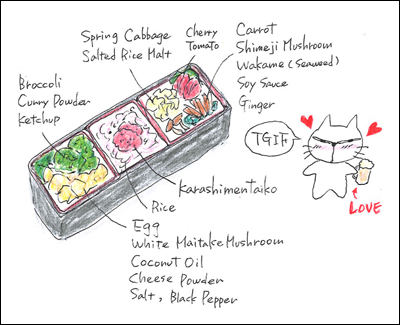 Spring Cabbage
Salted Rice Malt
Cherry
Tomato
Carrot
Shimeji Mushroom
Wakame (Seaweed)
Soy Sauce
Ginger
Broccoli
Curry Powder
Ketchup
TGIF
LOVE
Karashimentaiko
Rice
Egg
White Maitake Mushroom
Coconut Oil
Cheese Powder
Salt, Black Pepper